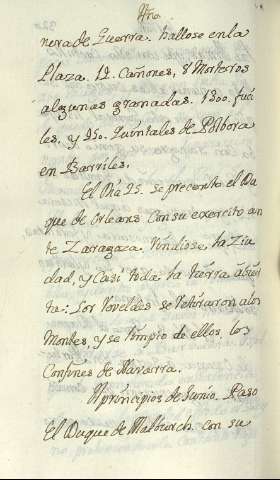 Año
nera de Guerra. hallose en la
Plaza. 12. Cañones, 8 Morteros
algunas granadas. 1300. fuci
les, y 250. Quintales de Polbora
en Barriles.
El Dia 25. se presento el Du
que de Orleans con su exercito an
te Zarragoza. Rindiose la Ziu
dad, y Casi toda la tierra abier
ta: Los reveldes se retiraron alos
Montes, y se limpio de ellos los
Confines de Navarra.
A principios de Junio. Paso
El Duque de Malburch con su